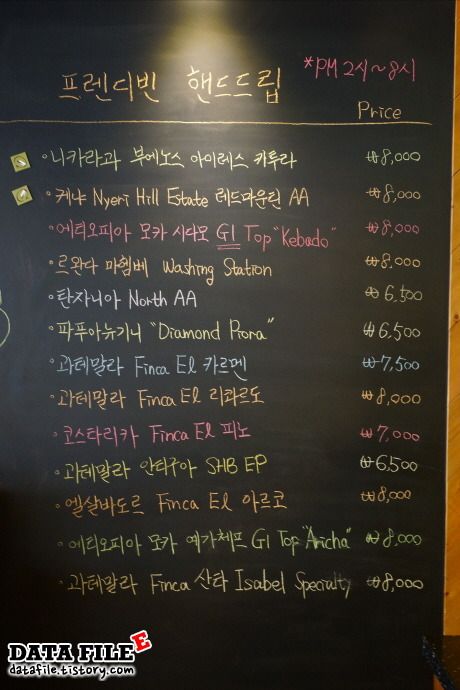 프렌디빈 핸드드립 *PM 2시~8시
Price
니카라과 부에노스 아이레스 카투라 ₩8,000
케냐 Nyeri Hill Estate 레드마운틴 AA ₩8,000
에티오피아 모카 시다모 G1 Top "Kebado" ₩8,000
르완다 마헴베 Washing Station ₩8,000
탄자니아 North AA ₩6,500
파푸아뉴기니 "Diamond Piora" ₩6,500
과테말라 Finca El 카르멘 ₩7,500
과테말라 Finca El 리콰르도 ₩8,000
코스타리카 Finca El 피노 ₩7,000
과테말라 안티구아 SHB EP ₩6,500
엘살바도르 Finca El 아르코 ₩8,000
에티오피아 모카 예가체프 G1 Top "Aricha" ₩8,000
과테말라 Finca 산타 Isabel Specialty ₩8,000
DATA FILE E
datafile.tistory.com